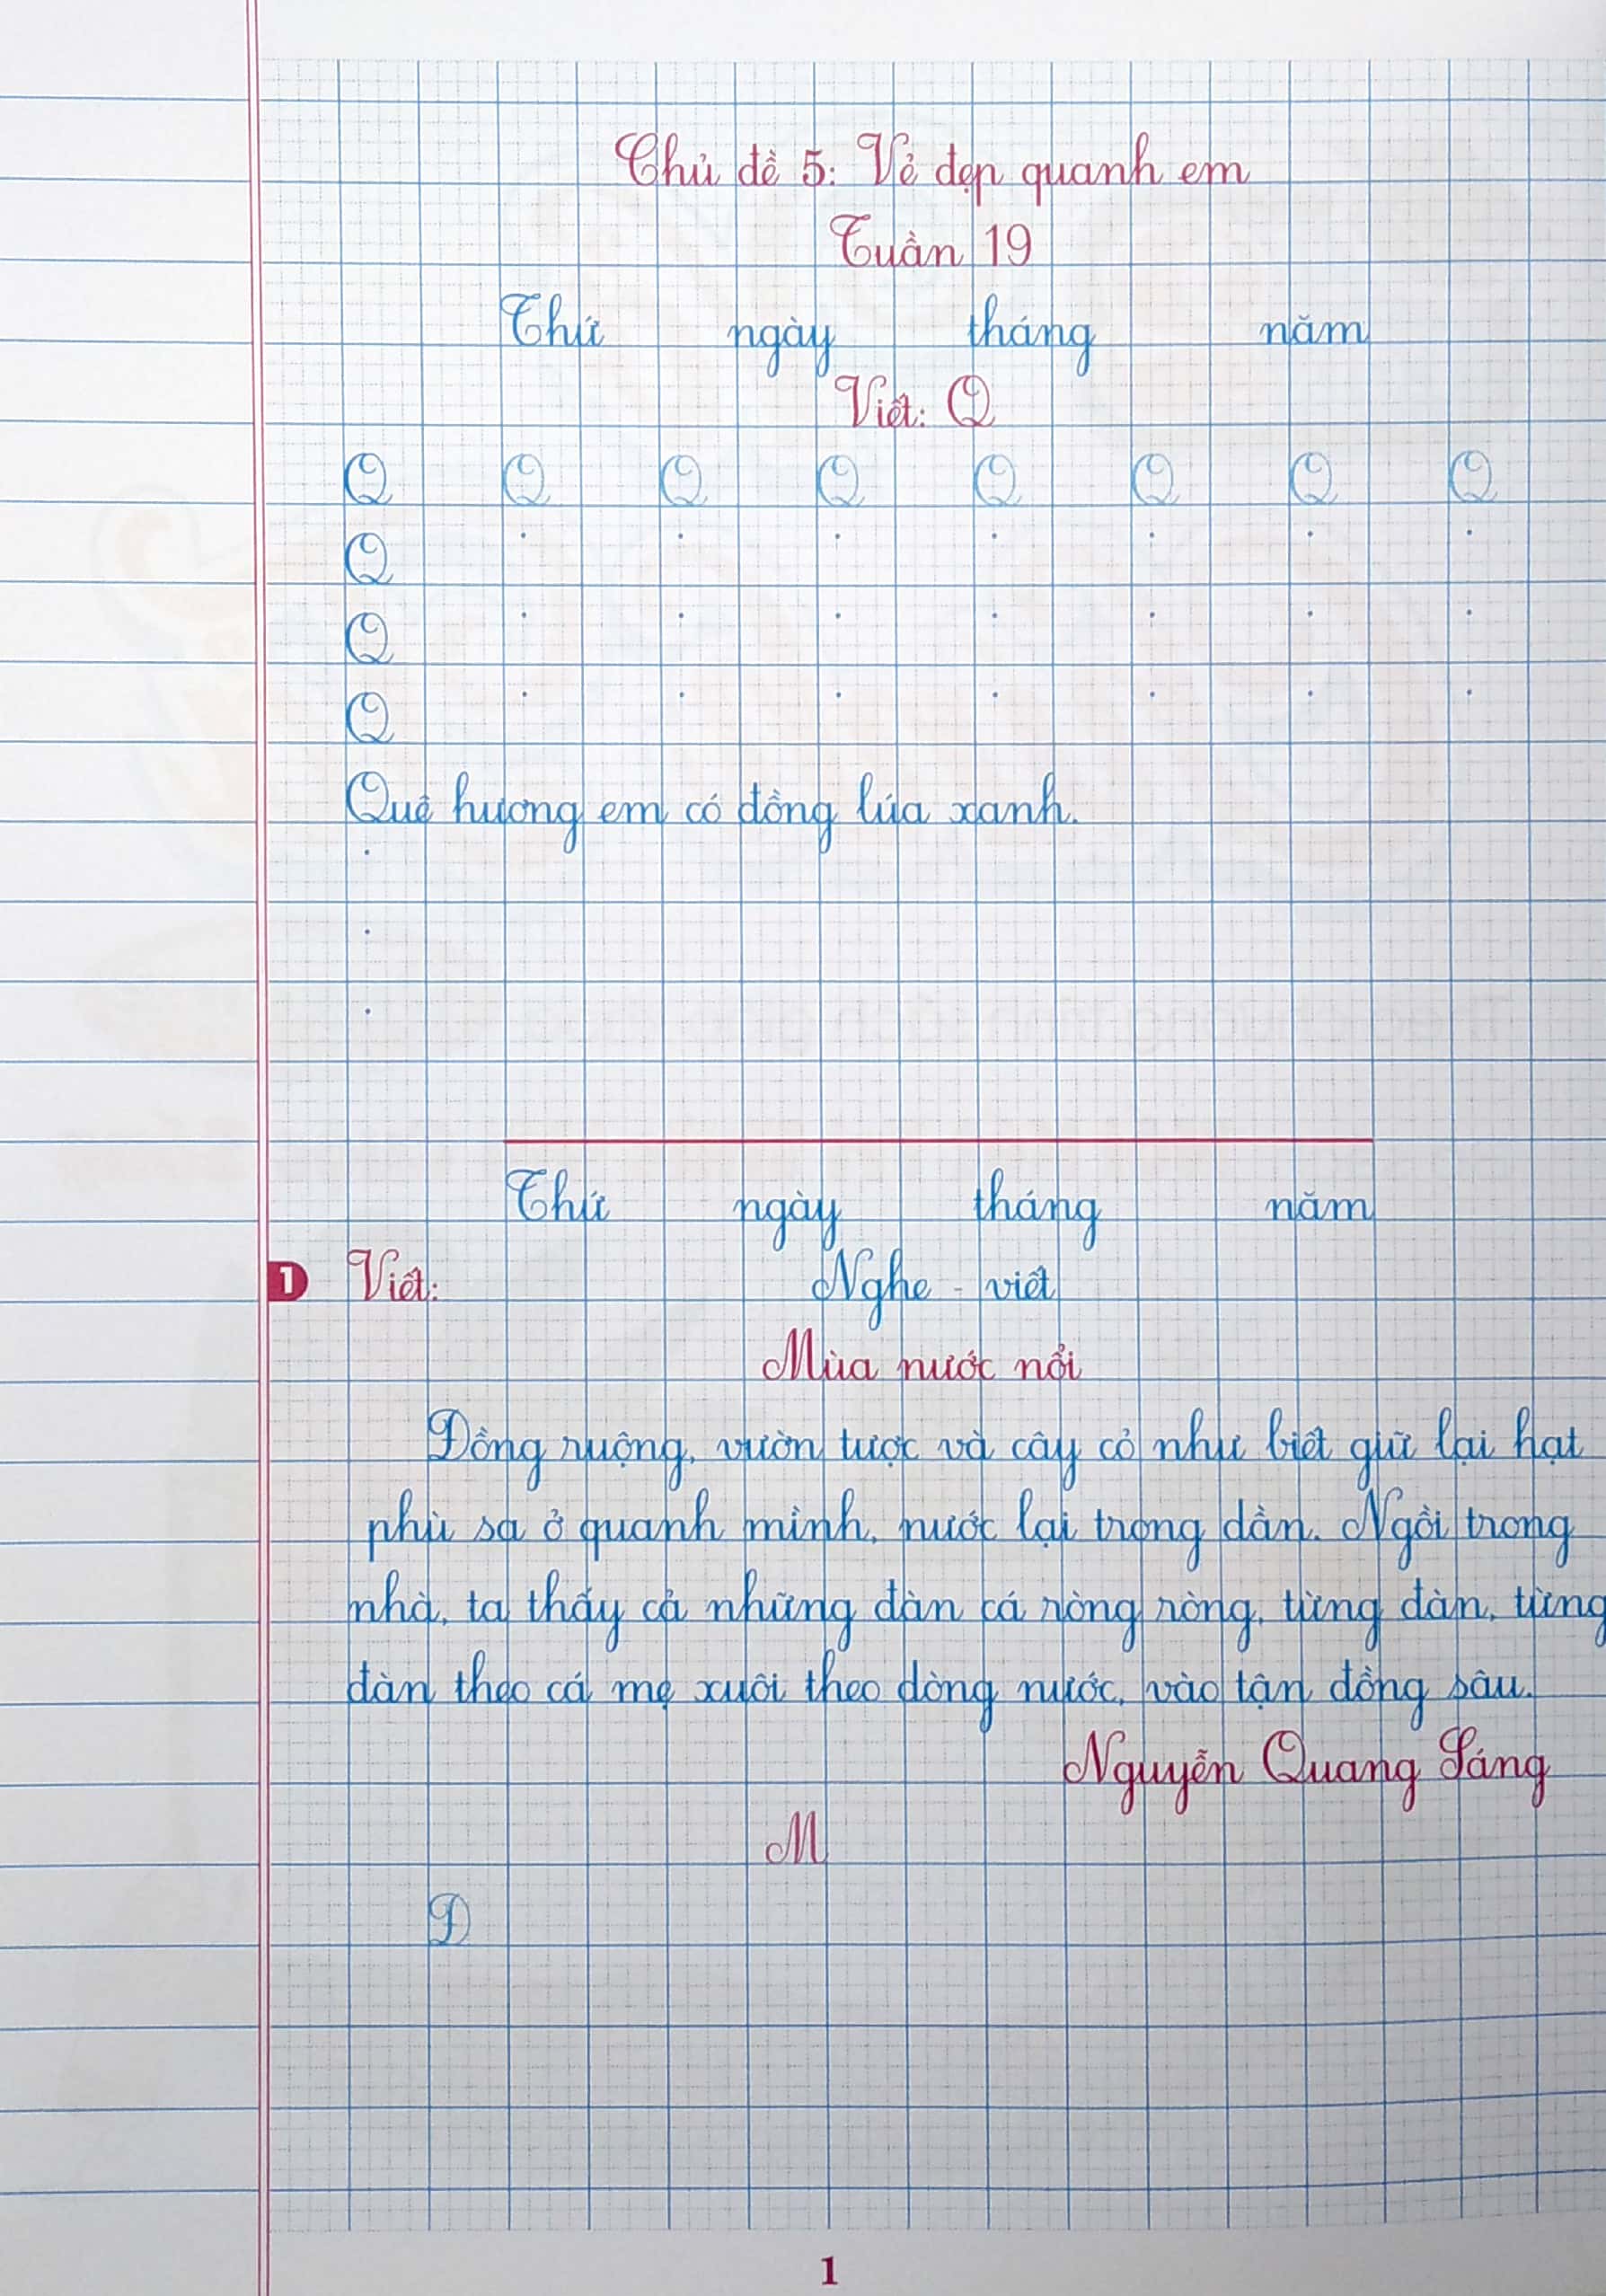 Chủ đề 5: Vẻ đẹp quanh em
Tuần 19
Thứ ngày tháng năm
Viết: Q
Q Q Q Q Q Q Q Q
Q
Q
Q
Quê hương em có đồng lúa xanh.
Thứ ngày tháng năm
1 Viết: Nghe - viết
Mùa nước nổi
Đồng ruộng, vườn tược và cây cỏ như biết giữ lại hạt
phù sa ở quanh mình, nước lại trong dần. Ngồi trong
nhà, ta thấy cả những đàn cá ròng ròng, từng đàn, từng
đàn theo cá mẹ xuôi theo dòng nước, vào tận đồng sâu.
Nguyễn Quang Sáng
M
Đ
1